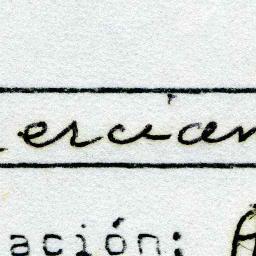 ercian
ación: